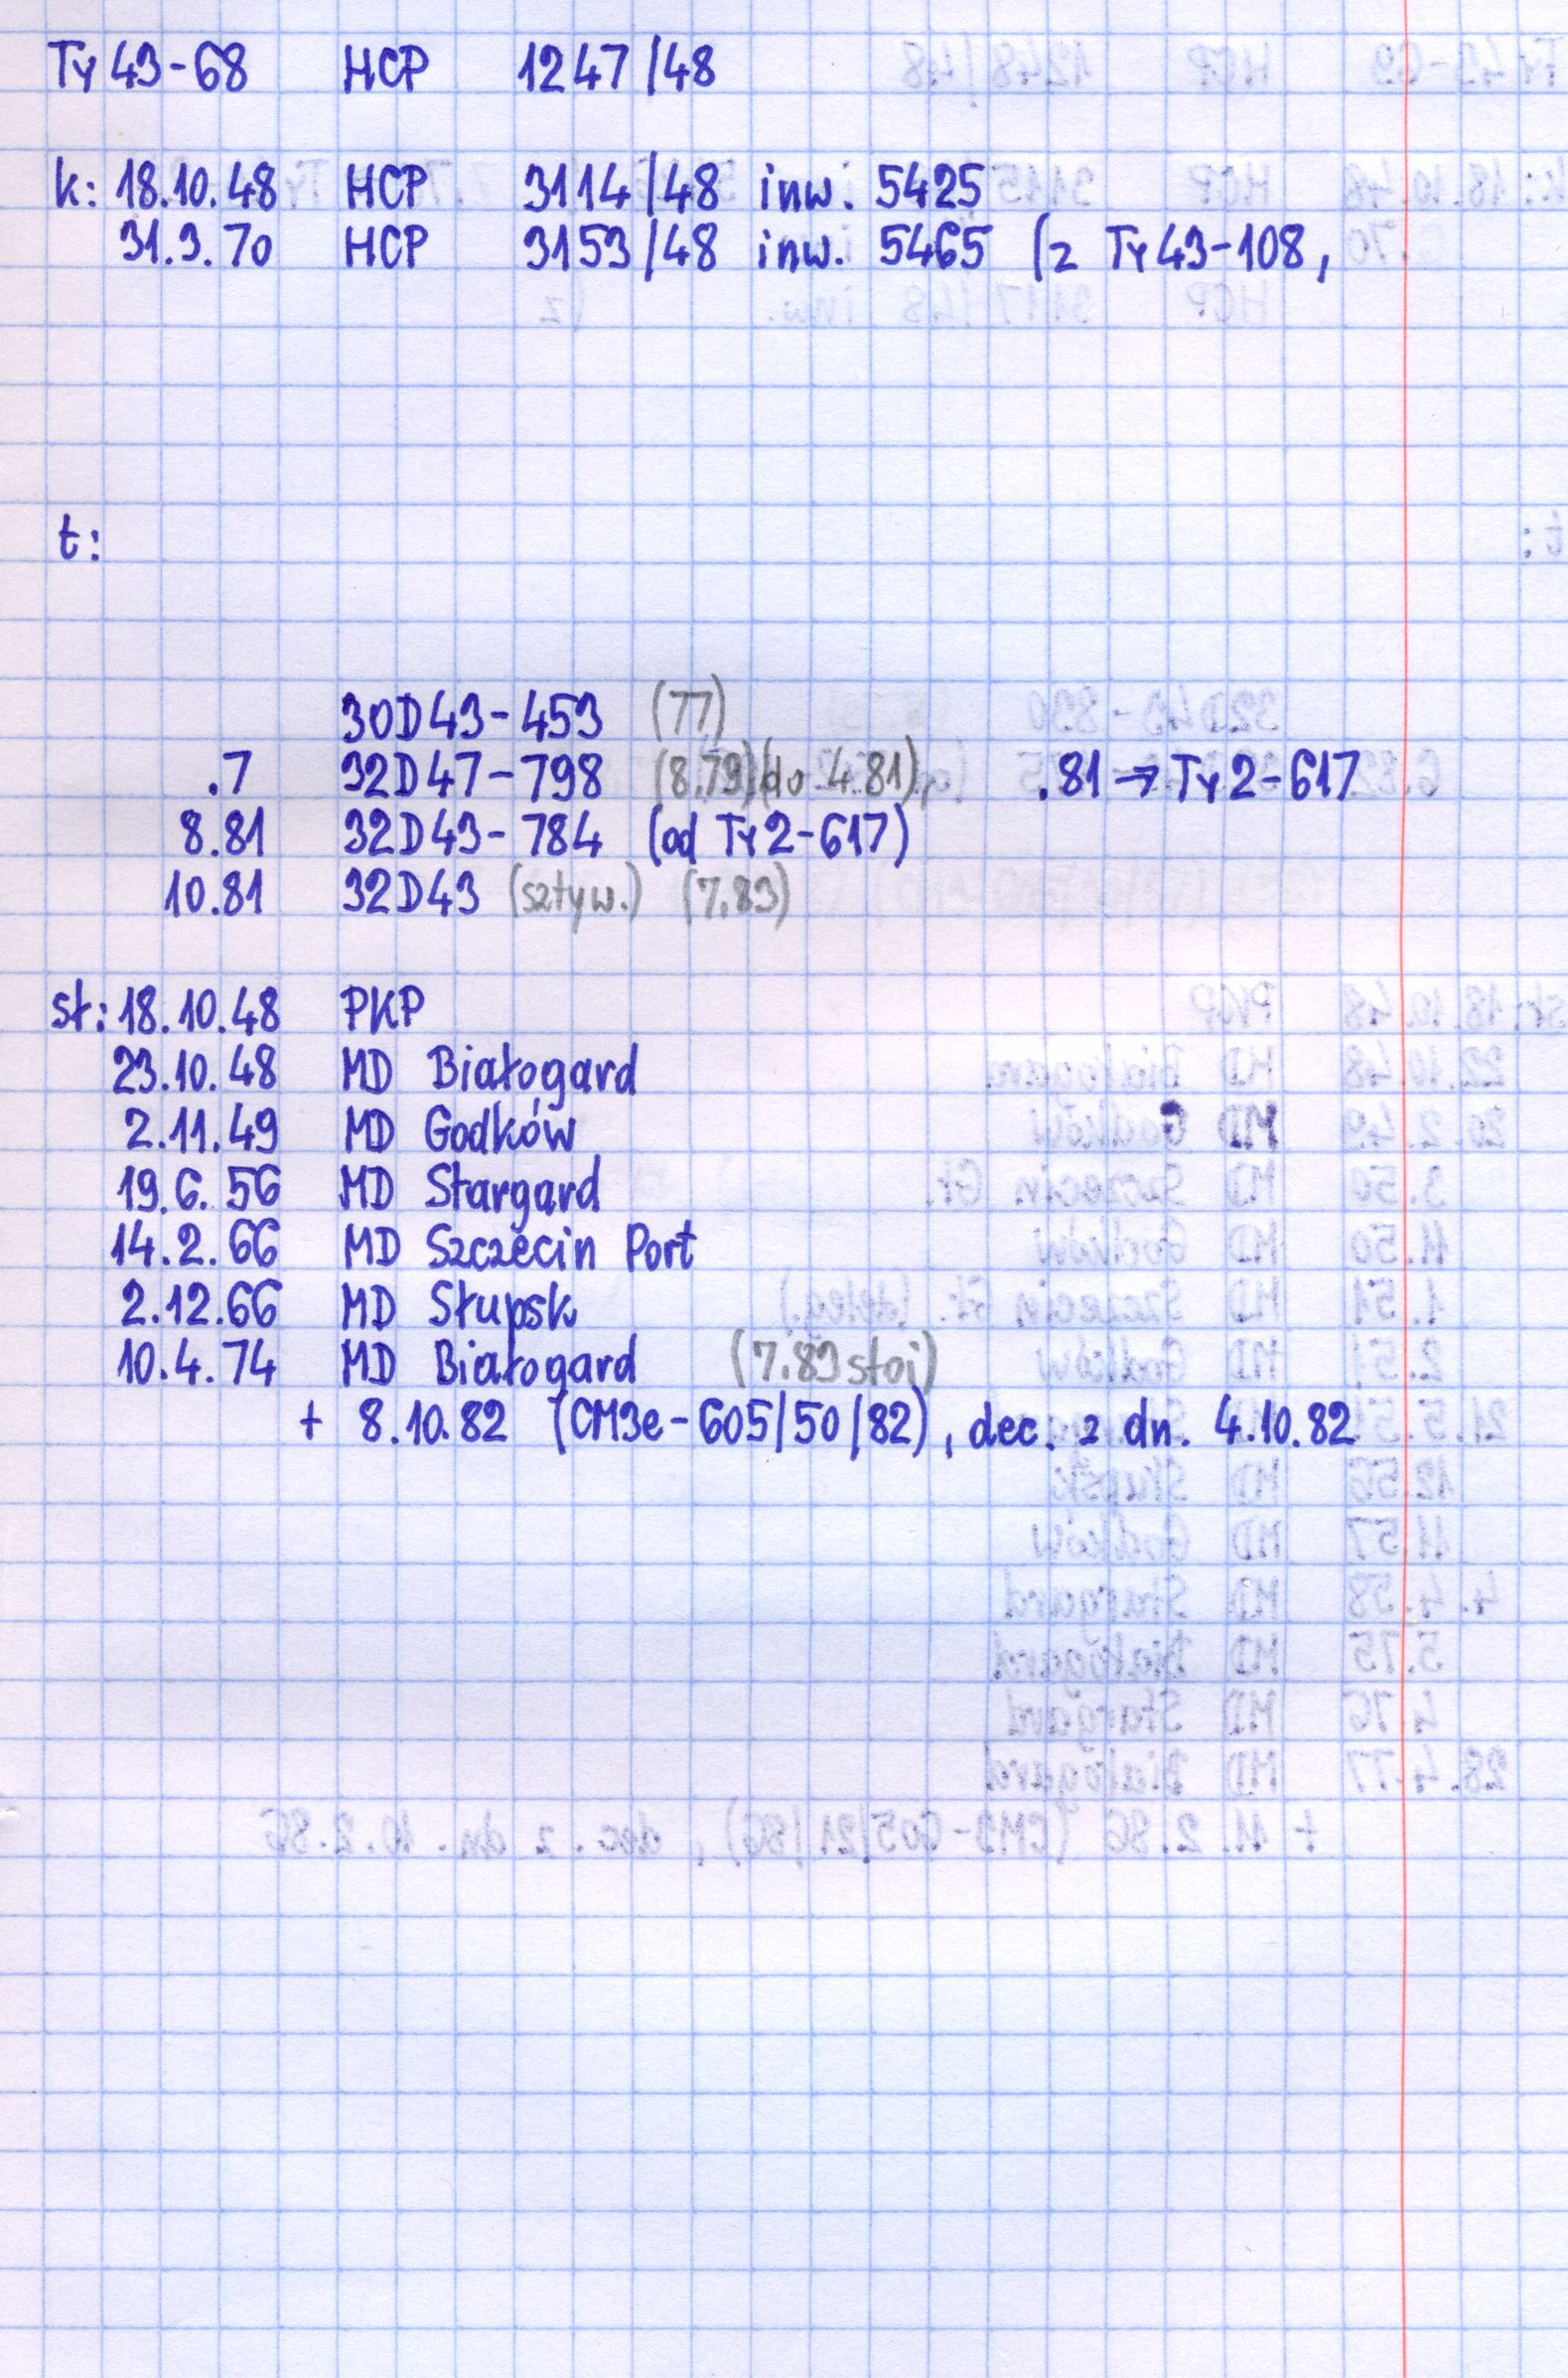 Ty43-68 HCP 1247/48
k: 18.10.48 HCP 3114/48 inw. 5425
31.3.70 HCP 3153/48 inw. 5465 (z Ty43-108,
t:
30D43-453 (77)
.7 32D47-798 (8.79) (do 4.81), .81 → Ty2-617
8.81 32D43-784 (od Ty2-617)
10.81 32D43 (sztyw.) (7.83)
st: 18.10.48 PKP
23.10.48 MD Białogard
2.11.49 MD Godków
19.6.56 MD Stargard
14.2.66 MD Szczecin Port
2.12.66 MD Słupsk
10.4.74 MD Białogard (7.83 stoi)
+ 8.10.82 (CM3e-605/50/82), dec. z dn. 4.10.82